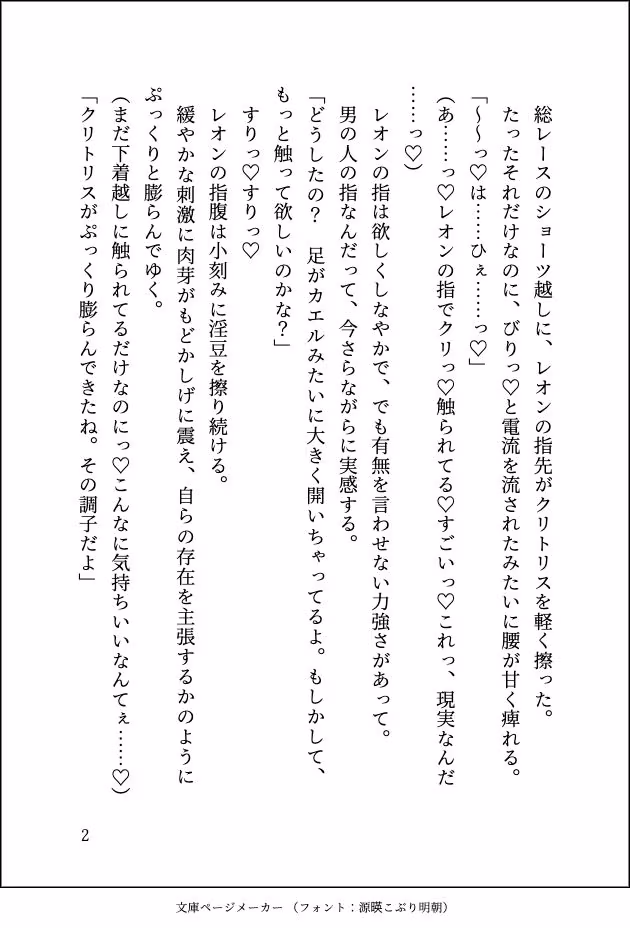 総レースのショーツ越しに、レオンの指先がクリトリスを軽く擦った。
たったそれだけなのに、びりっ♡と電流を流されたみたいに腰が甘く痺れる。
「～～っ♡は……ひぇ……っ♡」
(あ……っ♡レオンの指でクリっ♡触られてる♡すごいっ♡これっ、現実なんだ
……っ♡)
レオンの指は欲しくしなやかで、でも有無を言わせない力強さがあって。
男の人の指なんだって、今さらながらに実感する。
「どうしたの？　足がカエルみたいに大きく開いちゃってるよ。もしかして、
もっと触って欲しいのかな？」
すりっ♡すりっ♡
レオンの指腹は小刻みに淫豆を擦り続ける。
緩やかな刺激に肉芽がもどかしげに震え、自らの存在を主張するかのように
ぷっくりと膨らんでゆく。
(まだ下着越しに触られてるだけなのにっ♡こんなに気持ちいいなんてぇ……♡)
「クリトリスがぷっくり膨らんできたね。その調子だよ」
2
文庫ページメーカー（フォント：源暎こぶり明朝）